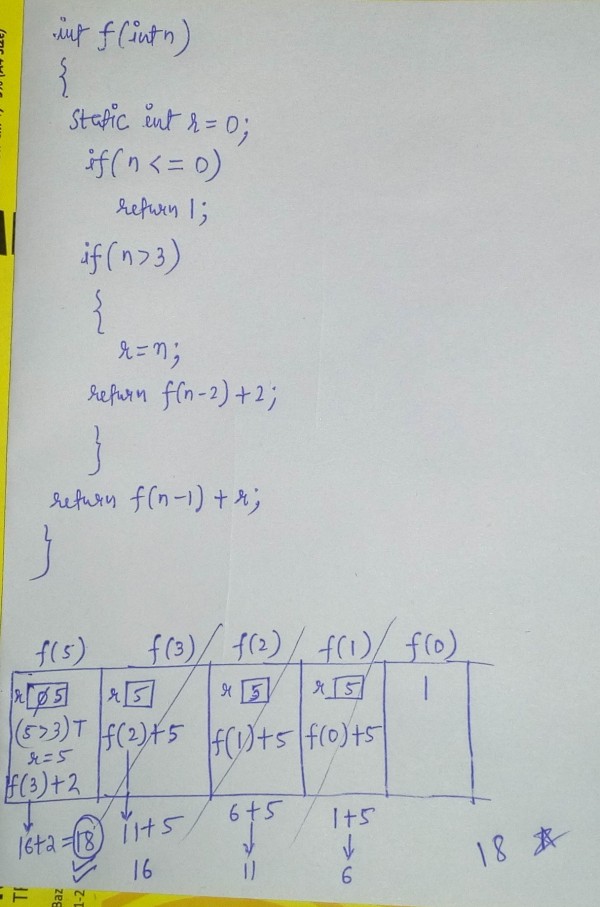 int f(int n)
{
static int r = 0;
if(n <= 0)
return 1;
if(n>3)
{
r=n;
return f(n-2)+2;
}
return f(n-1)+r;
}
f(5) f(3) f(2) f(1) f(0)
r 0 5 r 5 r 5 r 5 1
(5>3)T f(2)+5 f(1)+5 f(0)+5
r=5
f(3)+2
16+2=18 11+5 6+5 1+5
16 11 6
18